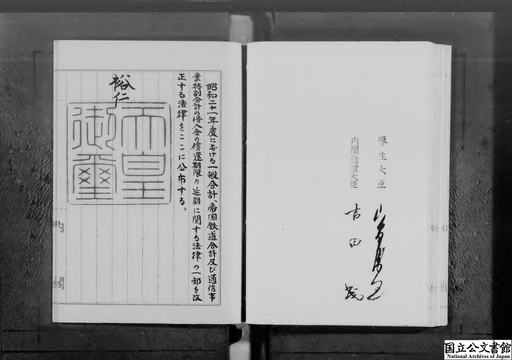 昭和二十一年度における一般会計、帝国鉄道会計及び通信事
業特別会計の借入金の償還期限の延期に関する法律の一部を改
正する法律をここに公布する。
裕仁
天皇
御璽
厚生大臣
内閣総理大臣
吉田茂
国立公文書館
National Archives of Japan